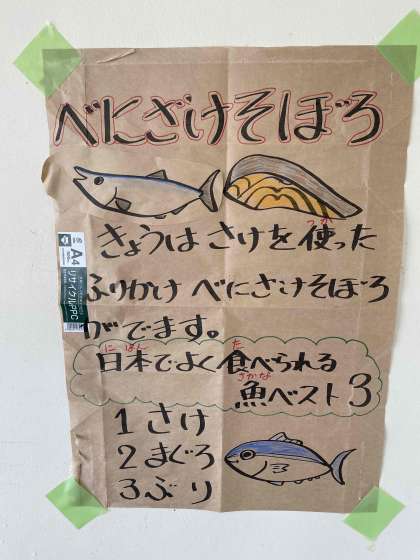 べにざけそぼろ
きょうは さけを 使った
つか
ふりかけ べにざけそぼろ
がでます。
日本でよく食べられる
にほん
た
魚ベスト3
さかな
1 さけ
2 まぐろ
3 ぶり
A4
リサイクルPPC